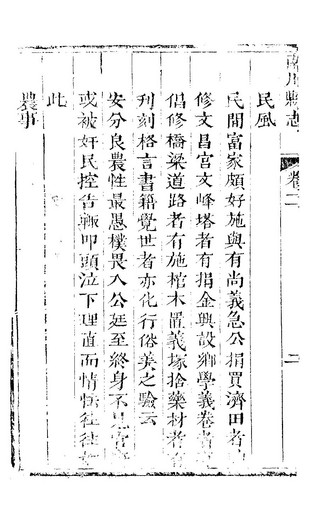 南川縣志
卷二
二
民風
民間富家頗好施與有尚義急公捐買濟田者
修文昌宮文峰塔者有捐金興設鄉學義卷者
倡修橋梁道路者有施棺木置義塚捨藥材者有
刊刻格言書籍覺世者亦化行俗美之驗云
安分良農性最愚樸畏入公廷至終身不見官
或被奸民控告輒叩頭泣下理直而情慎往往
此
農事